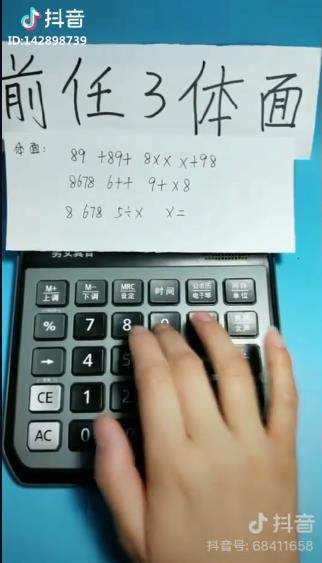 抖音
ID:142898739
前任3体面
体面:
89 +89+ 8xx x+98
8678 6++ 9+x8
8 678 5÷x x=
M+
上调
M-
下调
MRC
设定
时间
公农历
电子琴
单位
%
7
8
9
→
4
5
CE
1
2
AC
0
抖音
抖音号: 68411658